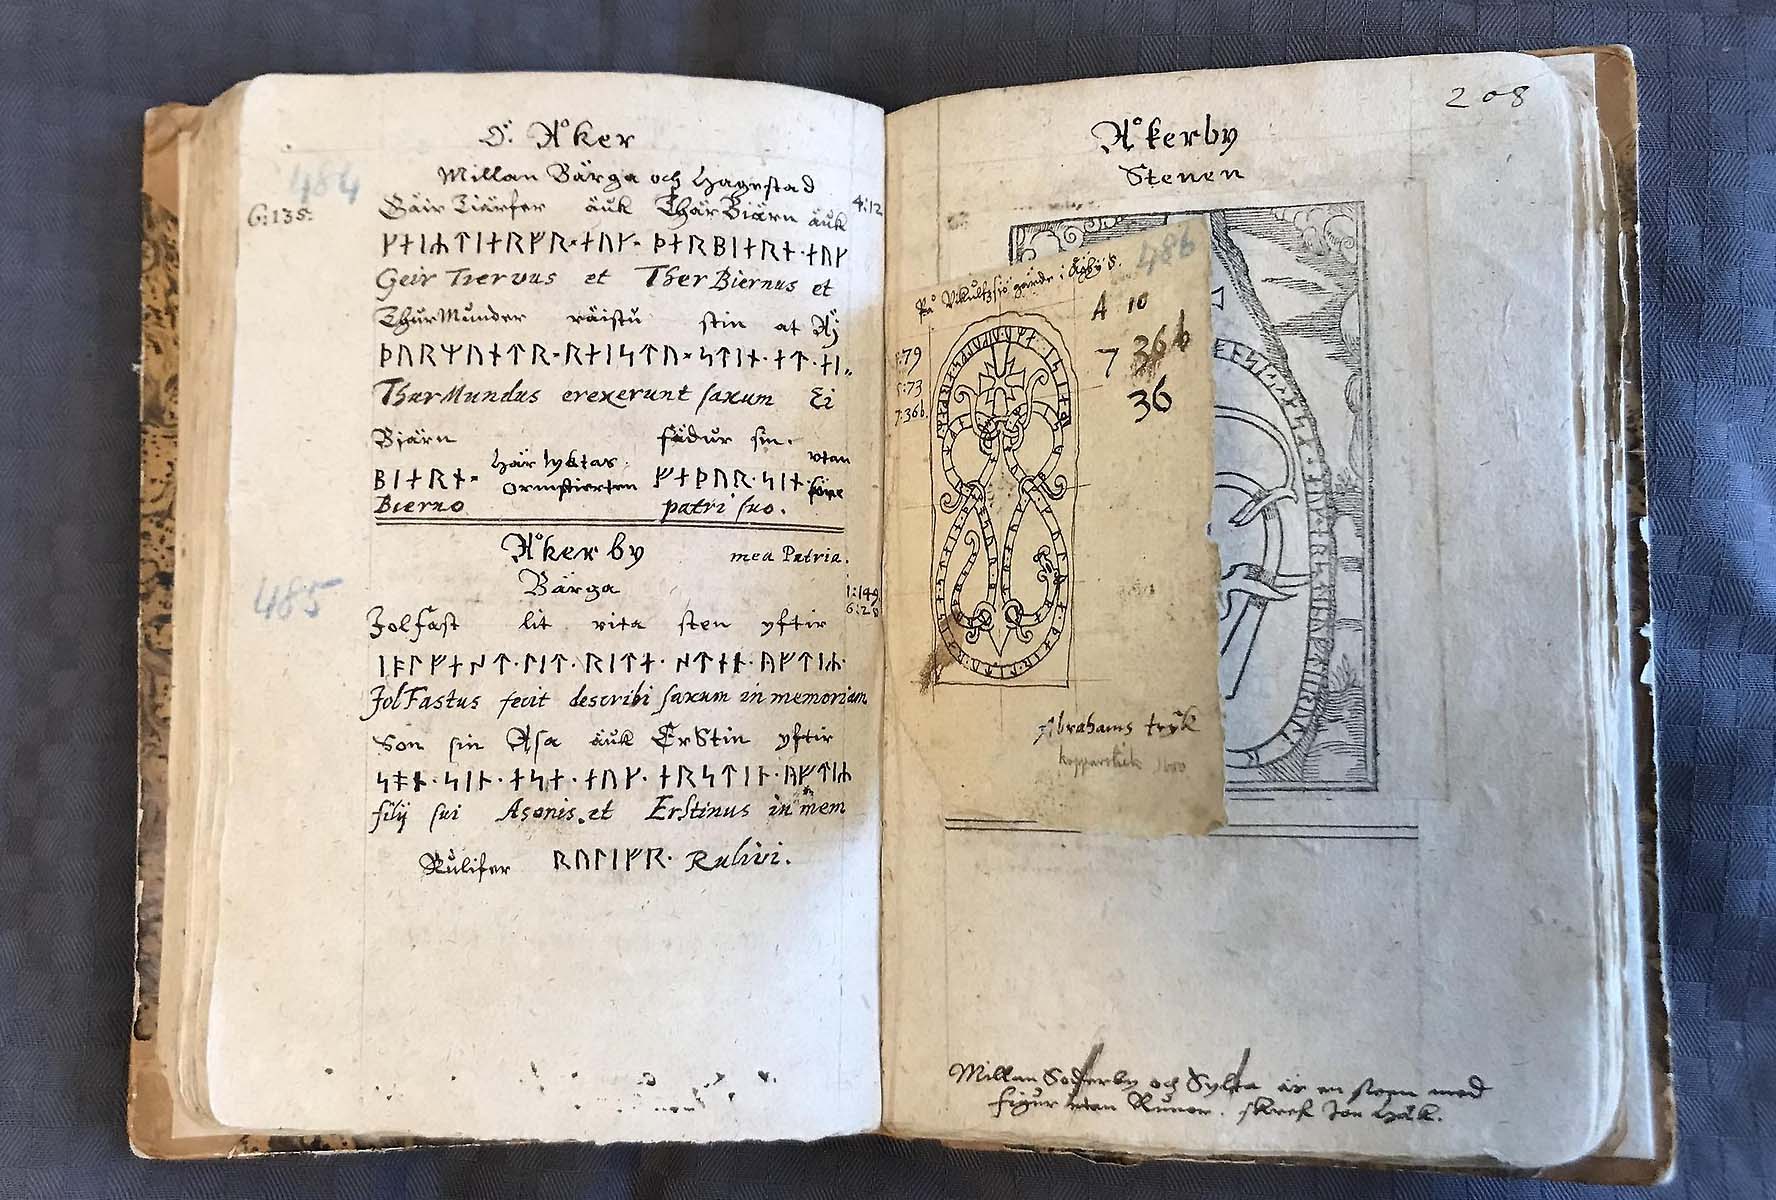 Ö. Åker
484
Millan Bärga och Hagestad
G:135: Gäir Tiärfer äuk ThärBiärn äuk 4:12
ᚴᛅᛁᛦᛏᛁᛅᚱᚠᚱ ᛅᚢᚴ ᚦᛅᚱᛒᛁᛅᚱᚾ ᛅᚢᚴ
Geir Tiervus et TherBiernus et
ThurMunder räistu stin at Äj
ᚦᚢᚱᛘᚢᚾᛏᚱ ᚱᛅᛁᛋᛏᚢ ᛋᛏᛁᚾ ᛅᛏ ᛅᛁ
ThurMundus erexerunt saxum Ei
Bjärn fädur sin.
Här lyktas utan
ᛒᛁᛅᚱᚾ ᚠᛅᚦᚢᚱ ᛋᛁᚾ
Ormstierten före
Bierno patri suo.
Åkerby mea Patria.
485
Bärga 1:149
6:28
Jolfast lit rita sten yftir
ᛁᚮᛚᚠᛅᛋᛏ ᛚᛁᛏ ᚱᛁᛏᛅ ᛋᛏᛅᚾ ᚤᚠᛏᛁᛦ
JolFastus fecit describi saxum in memoriam
Son sin Asa äuk ErStin yftir
ᛋᚮᚾ ᛋᛁᚾ ᛅᛋᛅ ᛅᚢᚴ ᛅᚱᛋᛏᛁᚾ ᚤᚠᛏᛁᛦ
filij sui Asonis et ErStinus in mem
Rulifer ᚱᚢᛚᛁᚠᚱ Rulivi.
208
Åkerby
Stenen
486
A 10
1:79
5:73
7:36b.
7 36b
36
Abrahams tryk
kopparstick 1600
Millan Söderby och Sylta är en steen med
figur utan Runor. skref Jon Håk.